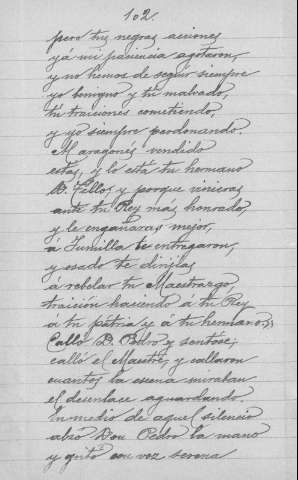 102.
pero tus negras acciones
yá mi paciencia agotaron,
y no hemos de seguir siempre
yo benigno y tú malvado,
tu traiciones cometiendo,
y yo siempre perdonando.
Al aragonés vendido
estas, y lo está tu hermano
D. Tello, y porque vinieras
ante tu Rey más honrado,
y le engañaras mejor,
á Jumilla te entregaron,
y osado te dirijías
á rebelar tu Maestrazgo,
traición haciendo á tu Rey
á tu pátria y á tu hermano;"
Calló D. Pedro y sentóse;
calló el Maestre, y callaron
cuantos la escena miraban
el desenlace aguardando.
En medio de aquel silencio
alzó Don Pedro la mano
y gritó con voz serena